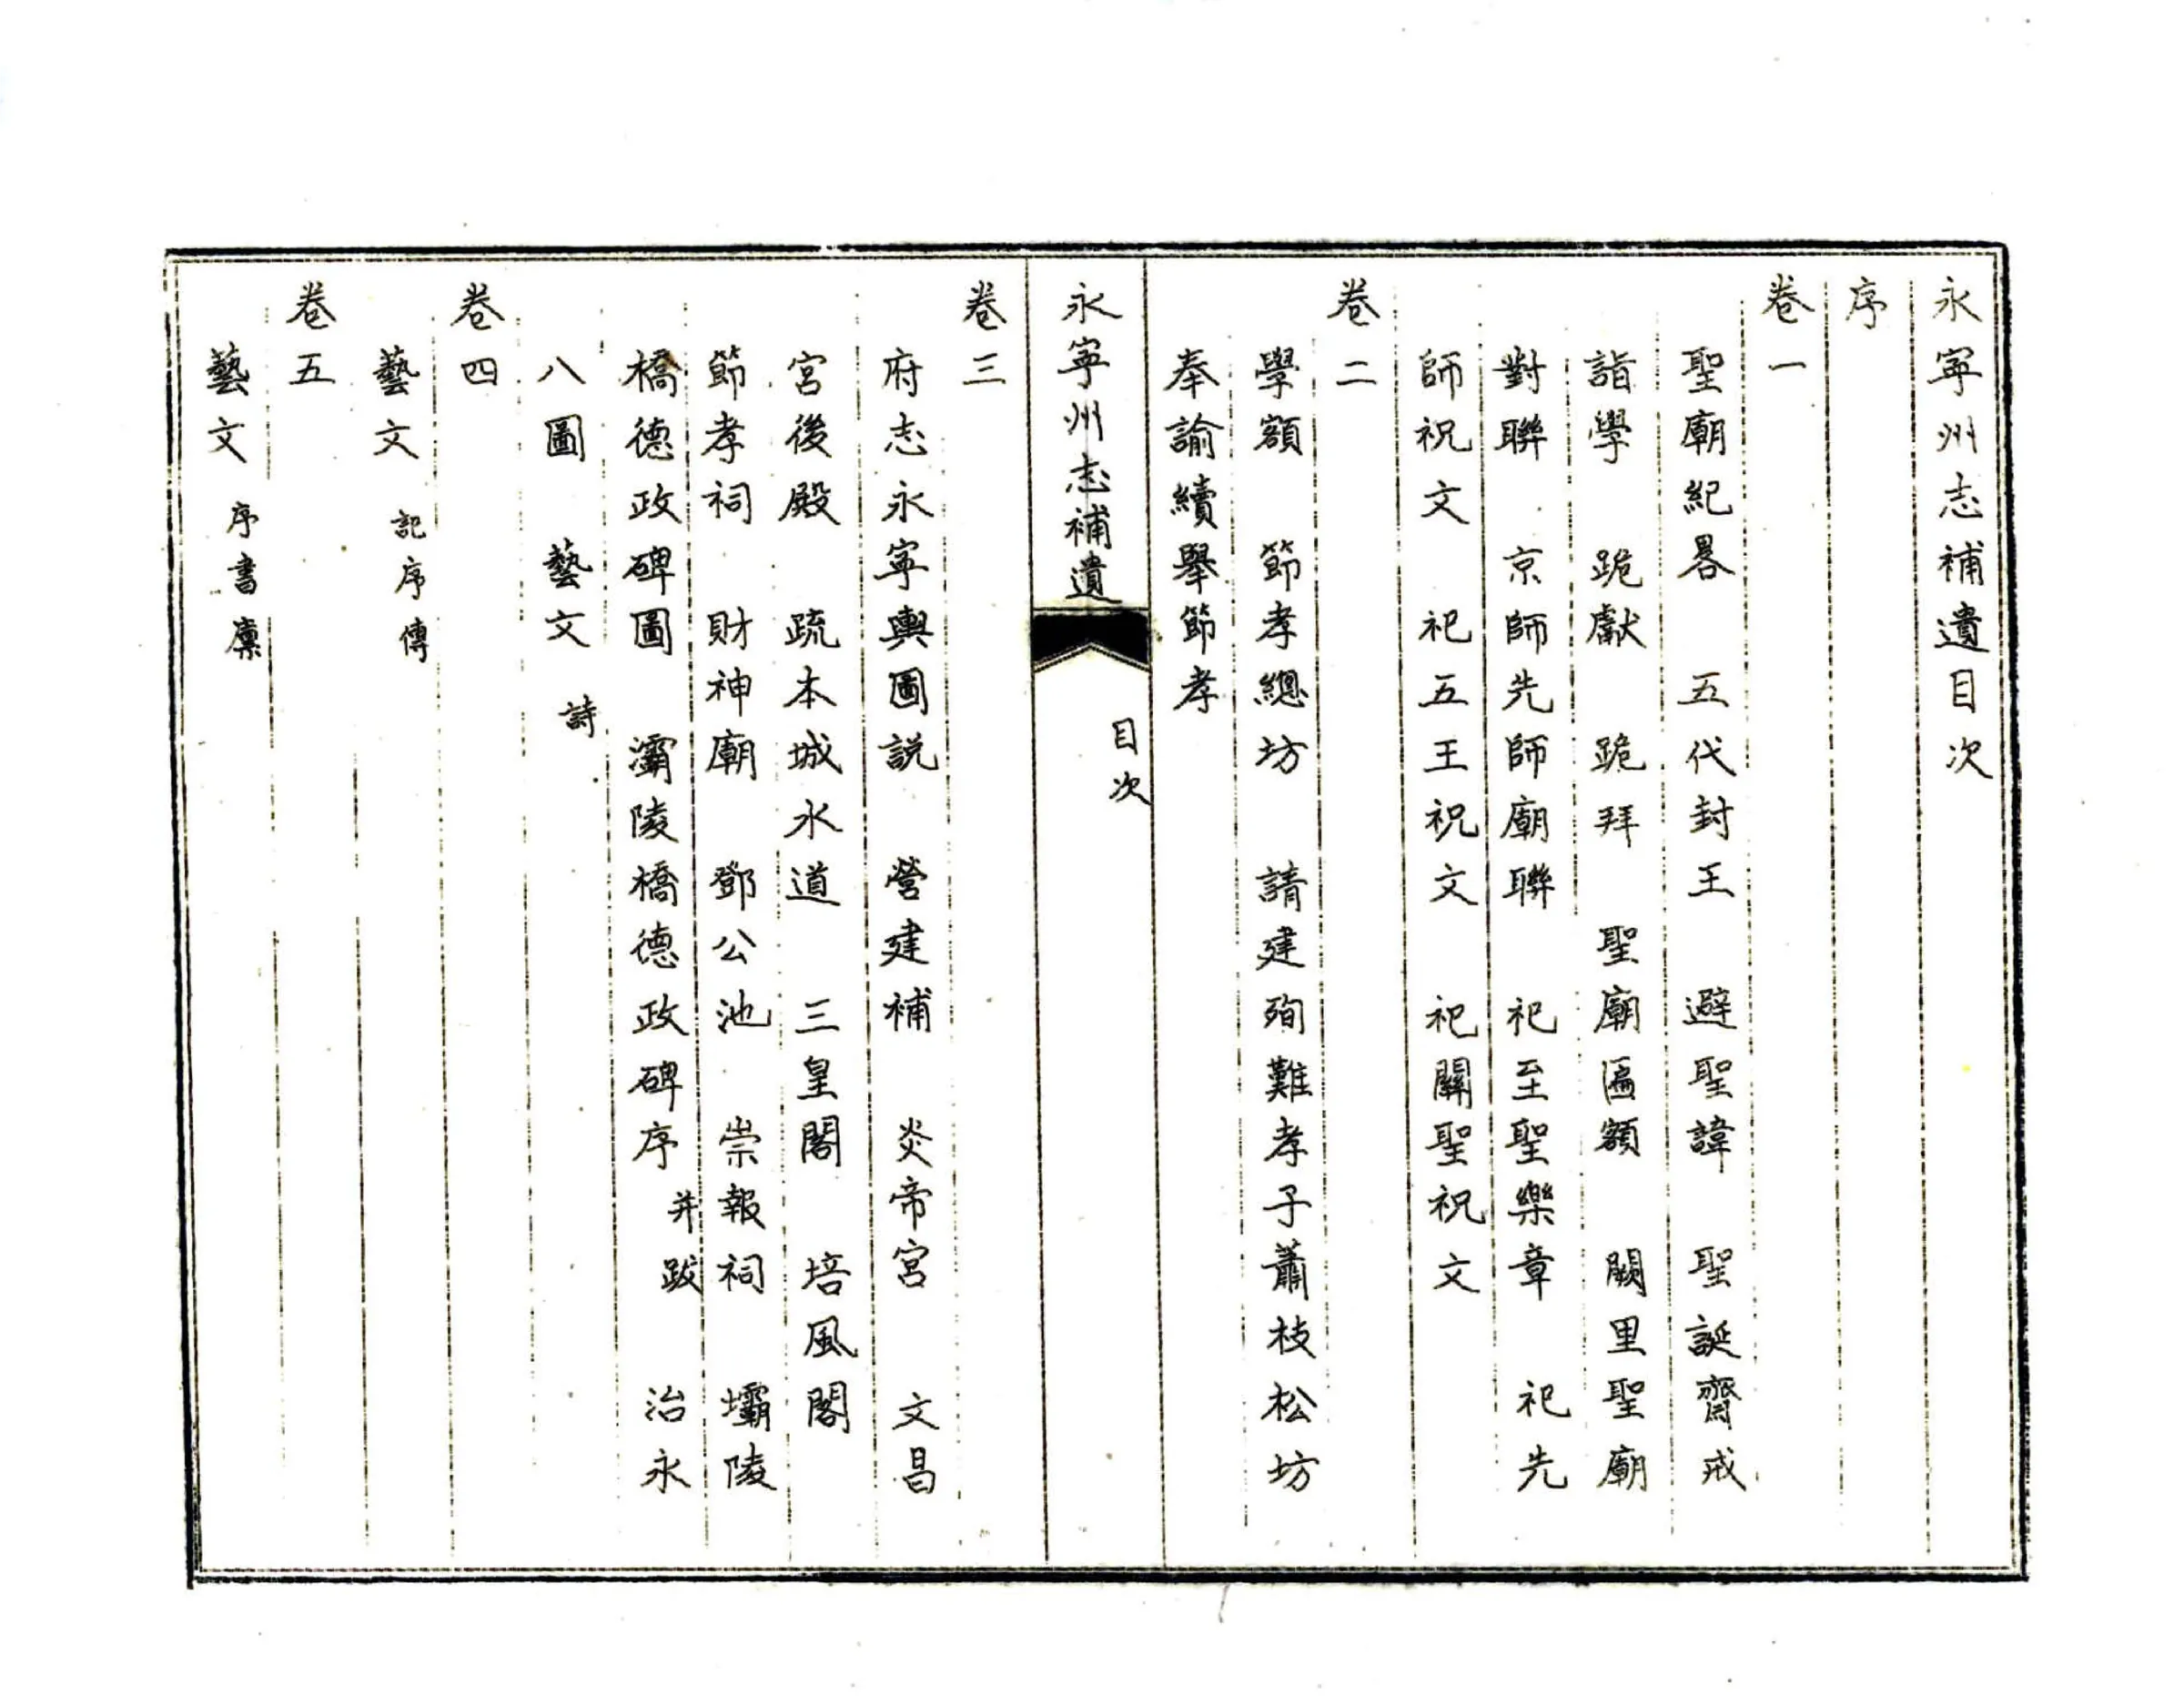 永寧州志補遺目次
序
卷一
聖廟紀畧　五代封王　避聖諱　聖誕齋戒
詣學　跪獻　跪拜　聖廟匾額　闕里聖廟
對聯　京師先師廟聯　祀至聖樂章　祀先
師祝文　祀五王祝文　祀關聖祝文
卷二
學額　節孝總坊　請建殉難孝子蕭枝松坊
奉諭續舉節孝
永寧州志補遺　目次
卷三
府志永寧輿圖説　營建補　炎帝宮　文昌
宮後殿　疏本城水道　三皇閣　培風閣
節孝祠　財神廟　鄧公池　崇報祠　壩陵
橋德政碑圖　灞陵橋德政碑序 并跋　治永
八圖　藝文 詩
卷四
藝文 記序傳
卷五
藝文 序書稟